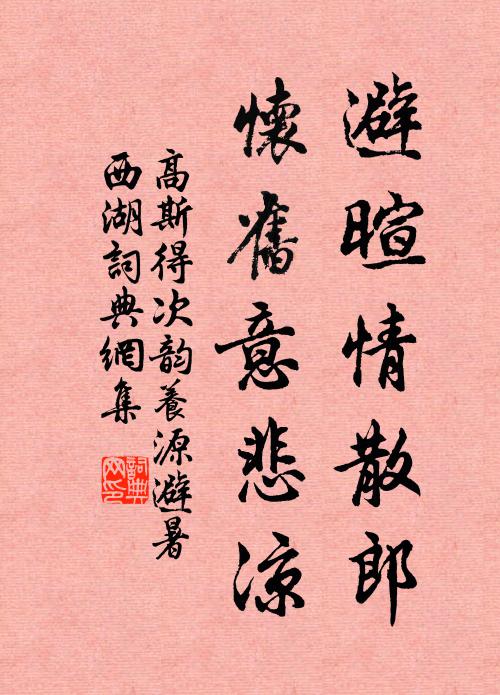 避暄情散郎
懷舊意悲涼
高斯得次韵養源避暑
西湖詞典網集
詞典网印